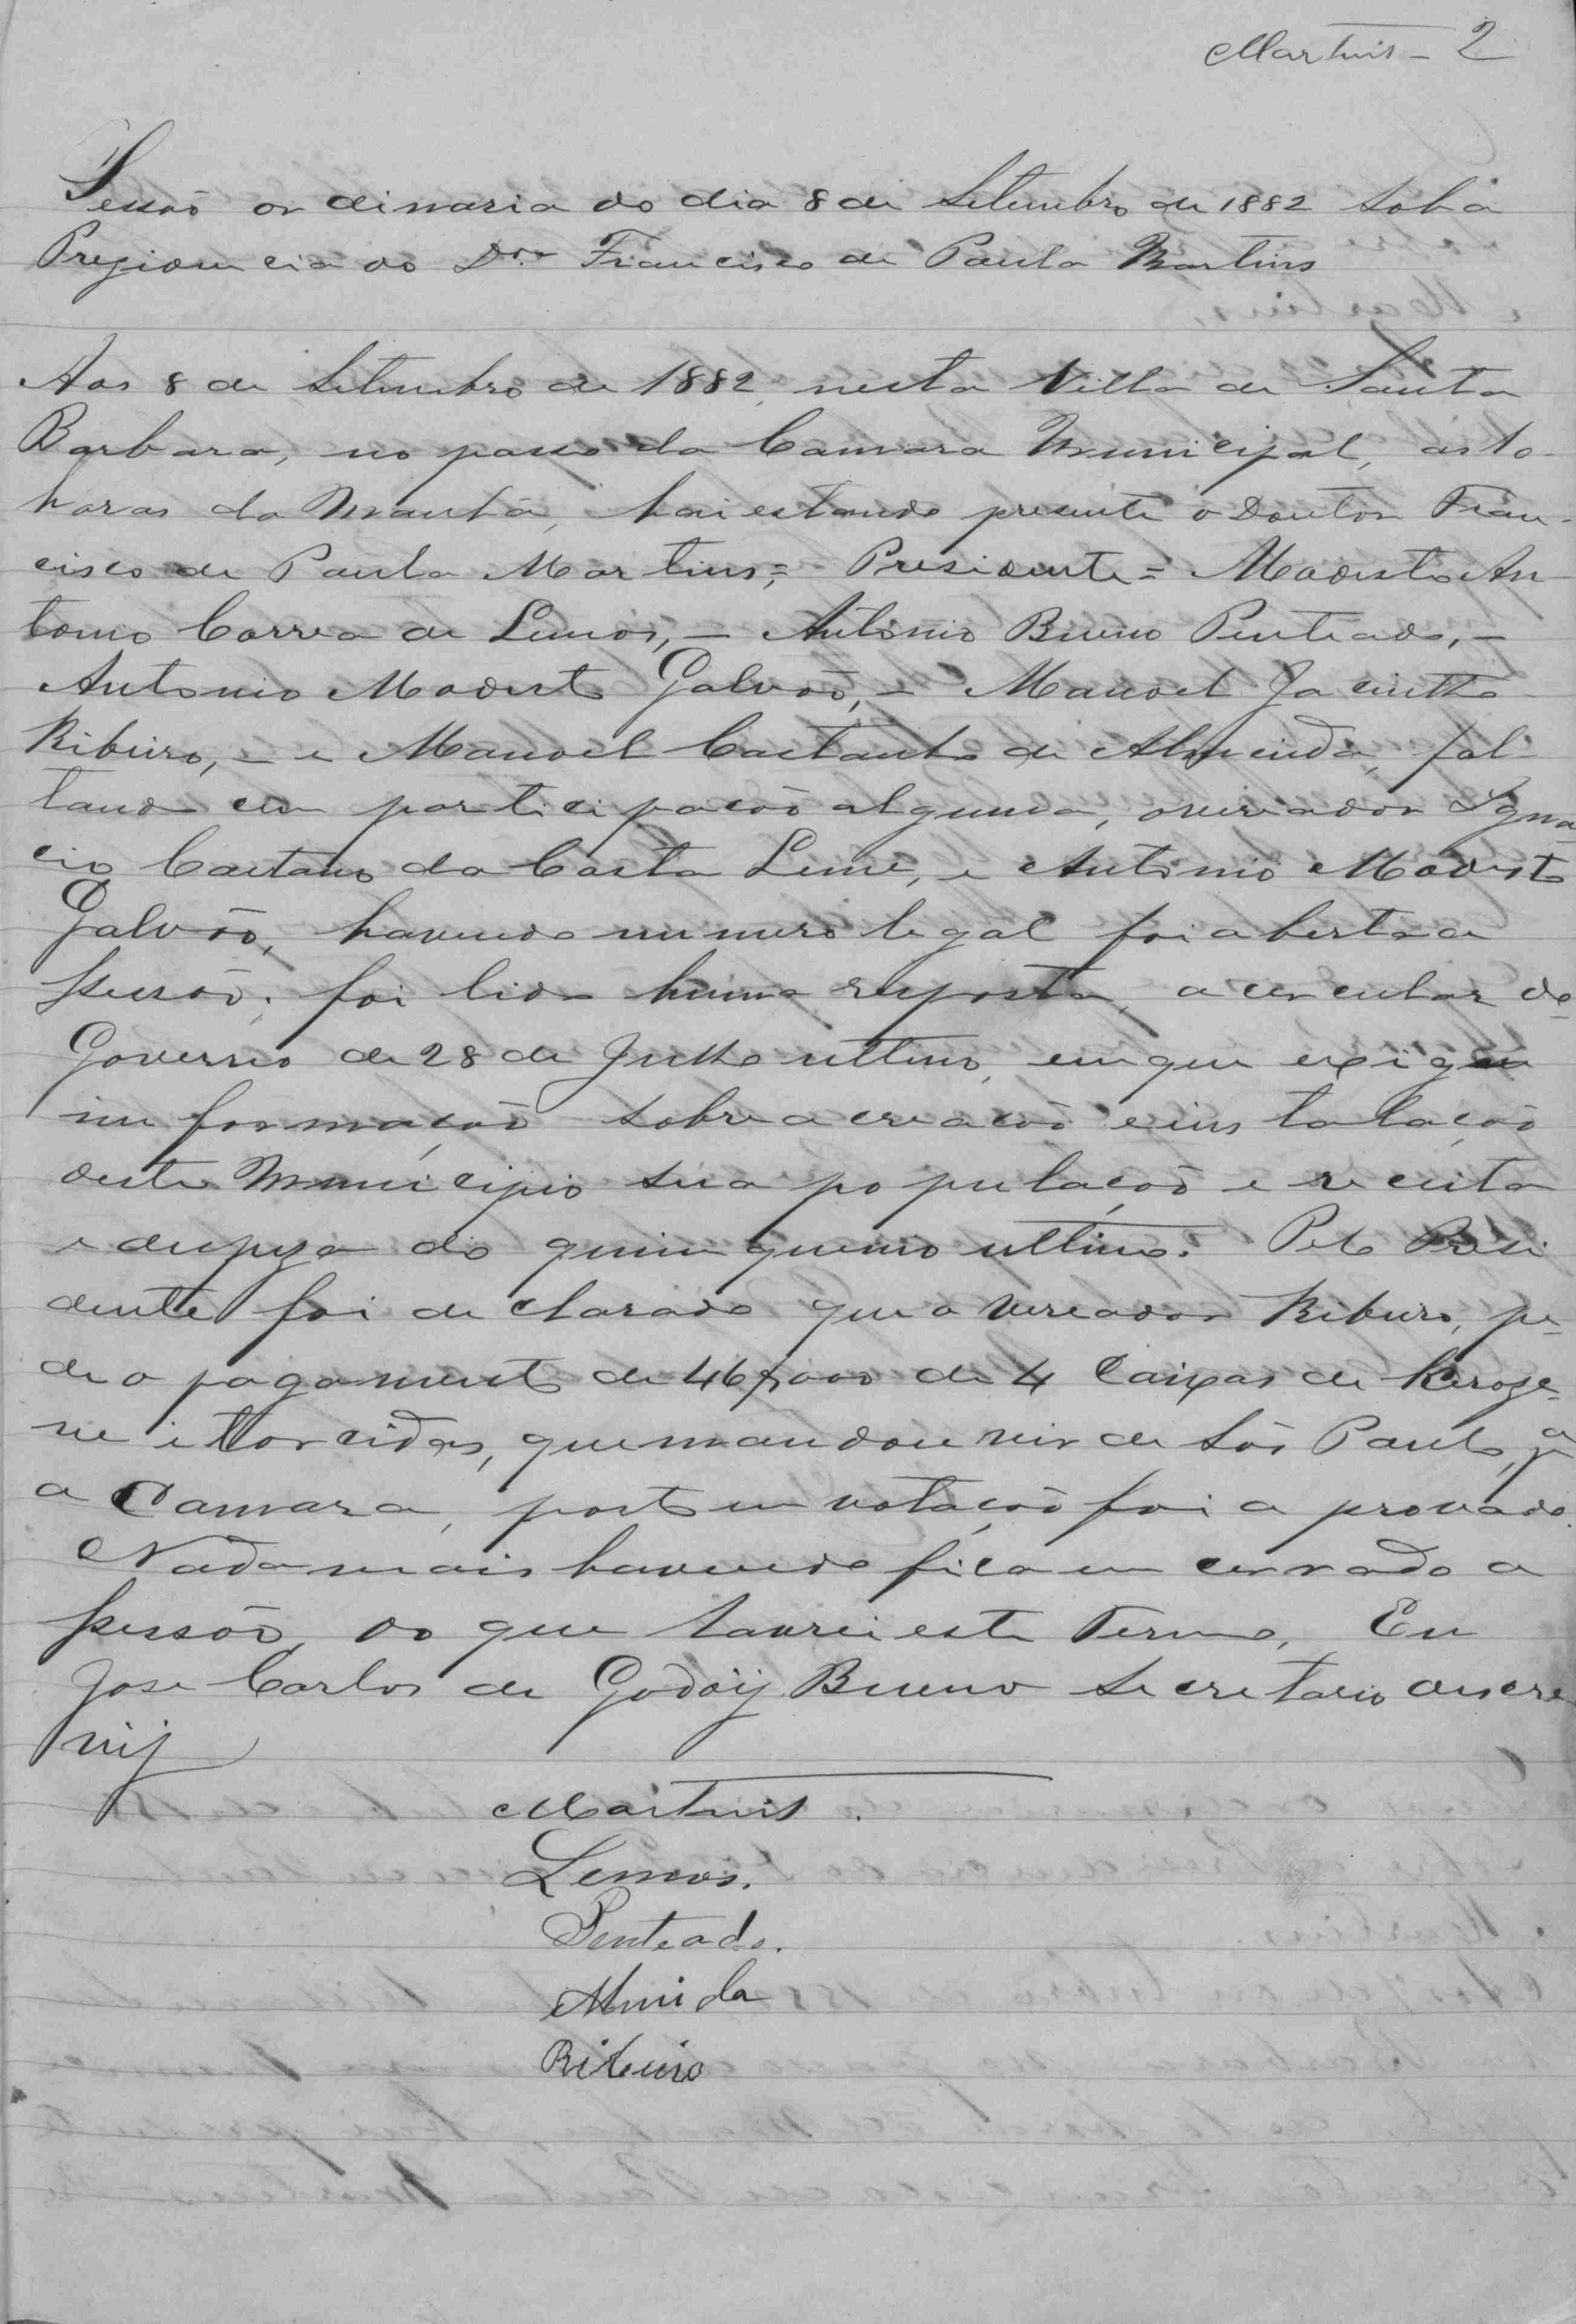 Martins - 2
Sessão ordinaria do dia 8 de Setembro de 1882 sob a
Prezidencia do Dor Francisco de Paula Martins
Aos 8 de Setembro de 1882, nesta Villa de Santa
Barbara, no passo da Camara Municipal, as 10
horas da Manhã, hai estando presente o Doutor Fran-
cisco de Paula Martins, = Presidente = Modesto An
tonio Correa de Lemos, - Antonio Bueno Penteado, -
Antonio Modesto Galvão, - Manoel Jacintho
Ribeiro, - e Manoel Caetanto de Almeida, fal
tando cem participação alguma, overeador Igna
cio Caetano da Costa Leme, e Antonio Modesto
Galvão, havendo numero legal foi aberta a
sessão; foi lida huma resposta, a circular do
Governo de 28 de Julho ultimo, em que exigem
informação sobre a creação e instalação
deste Municipio sua população e receita
e despeza do quinquenio ultimo. Pelo Presi
dente foi declarado que o vereador Ribeiro, pe-
de o pagamento de 46$000 de 4 Caixas de Keroze-
ne e torcidas, que mandou vir de São Paulo, pa
a Camara, posto em votação foi aprovado.
Nada mais havendo fica encerrado a
sessão, do que lavrei este Termo, Eu
Jose Carlos de Godoÿ Bueno Secretario o escre
vij
Martins.
Lemos.
Penteado.
Almeida
Ribeiro